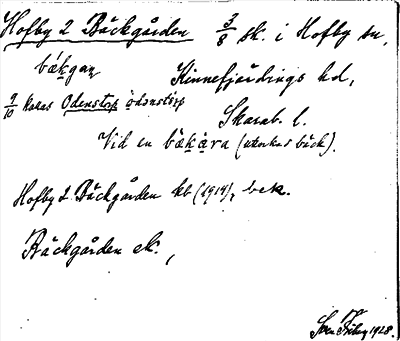 Hofby 2 Bäckgården 3/8 sk. i Hofby sn,
bäkgan Kinnefjärdings hd,
9/10 kallas Odenstorp ödnstörp Skarab. l.
Vid en bäkära (uttorkad bäck).
Hofby 2 Bäckgården kb (1914), bek.
Bäckgården ek.,
1928.